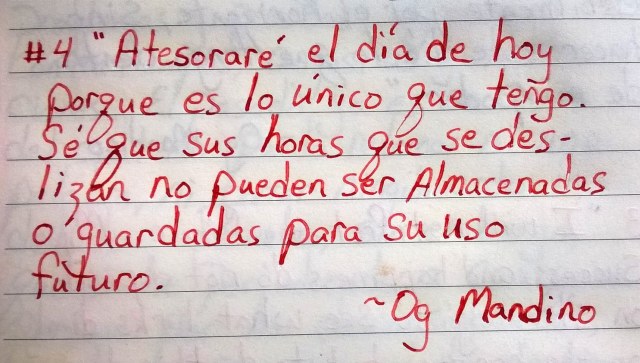 #4 "Atesoraré el día de hoy
porque es lo único que tengo.
Sé que sus horas que se des-
lizan no pueden ser Almacenadas
o guardadas para su uso
futuro.
~Og Mandino